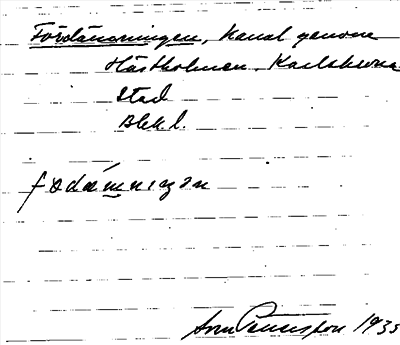 Fördämningen, Kanal genom
Hästholmen. Karlskrona
Stad
Blek. l.
födämnıŋən
1935